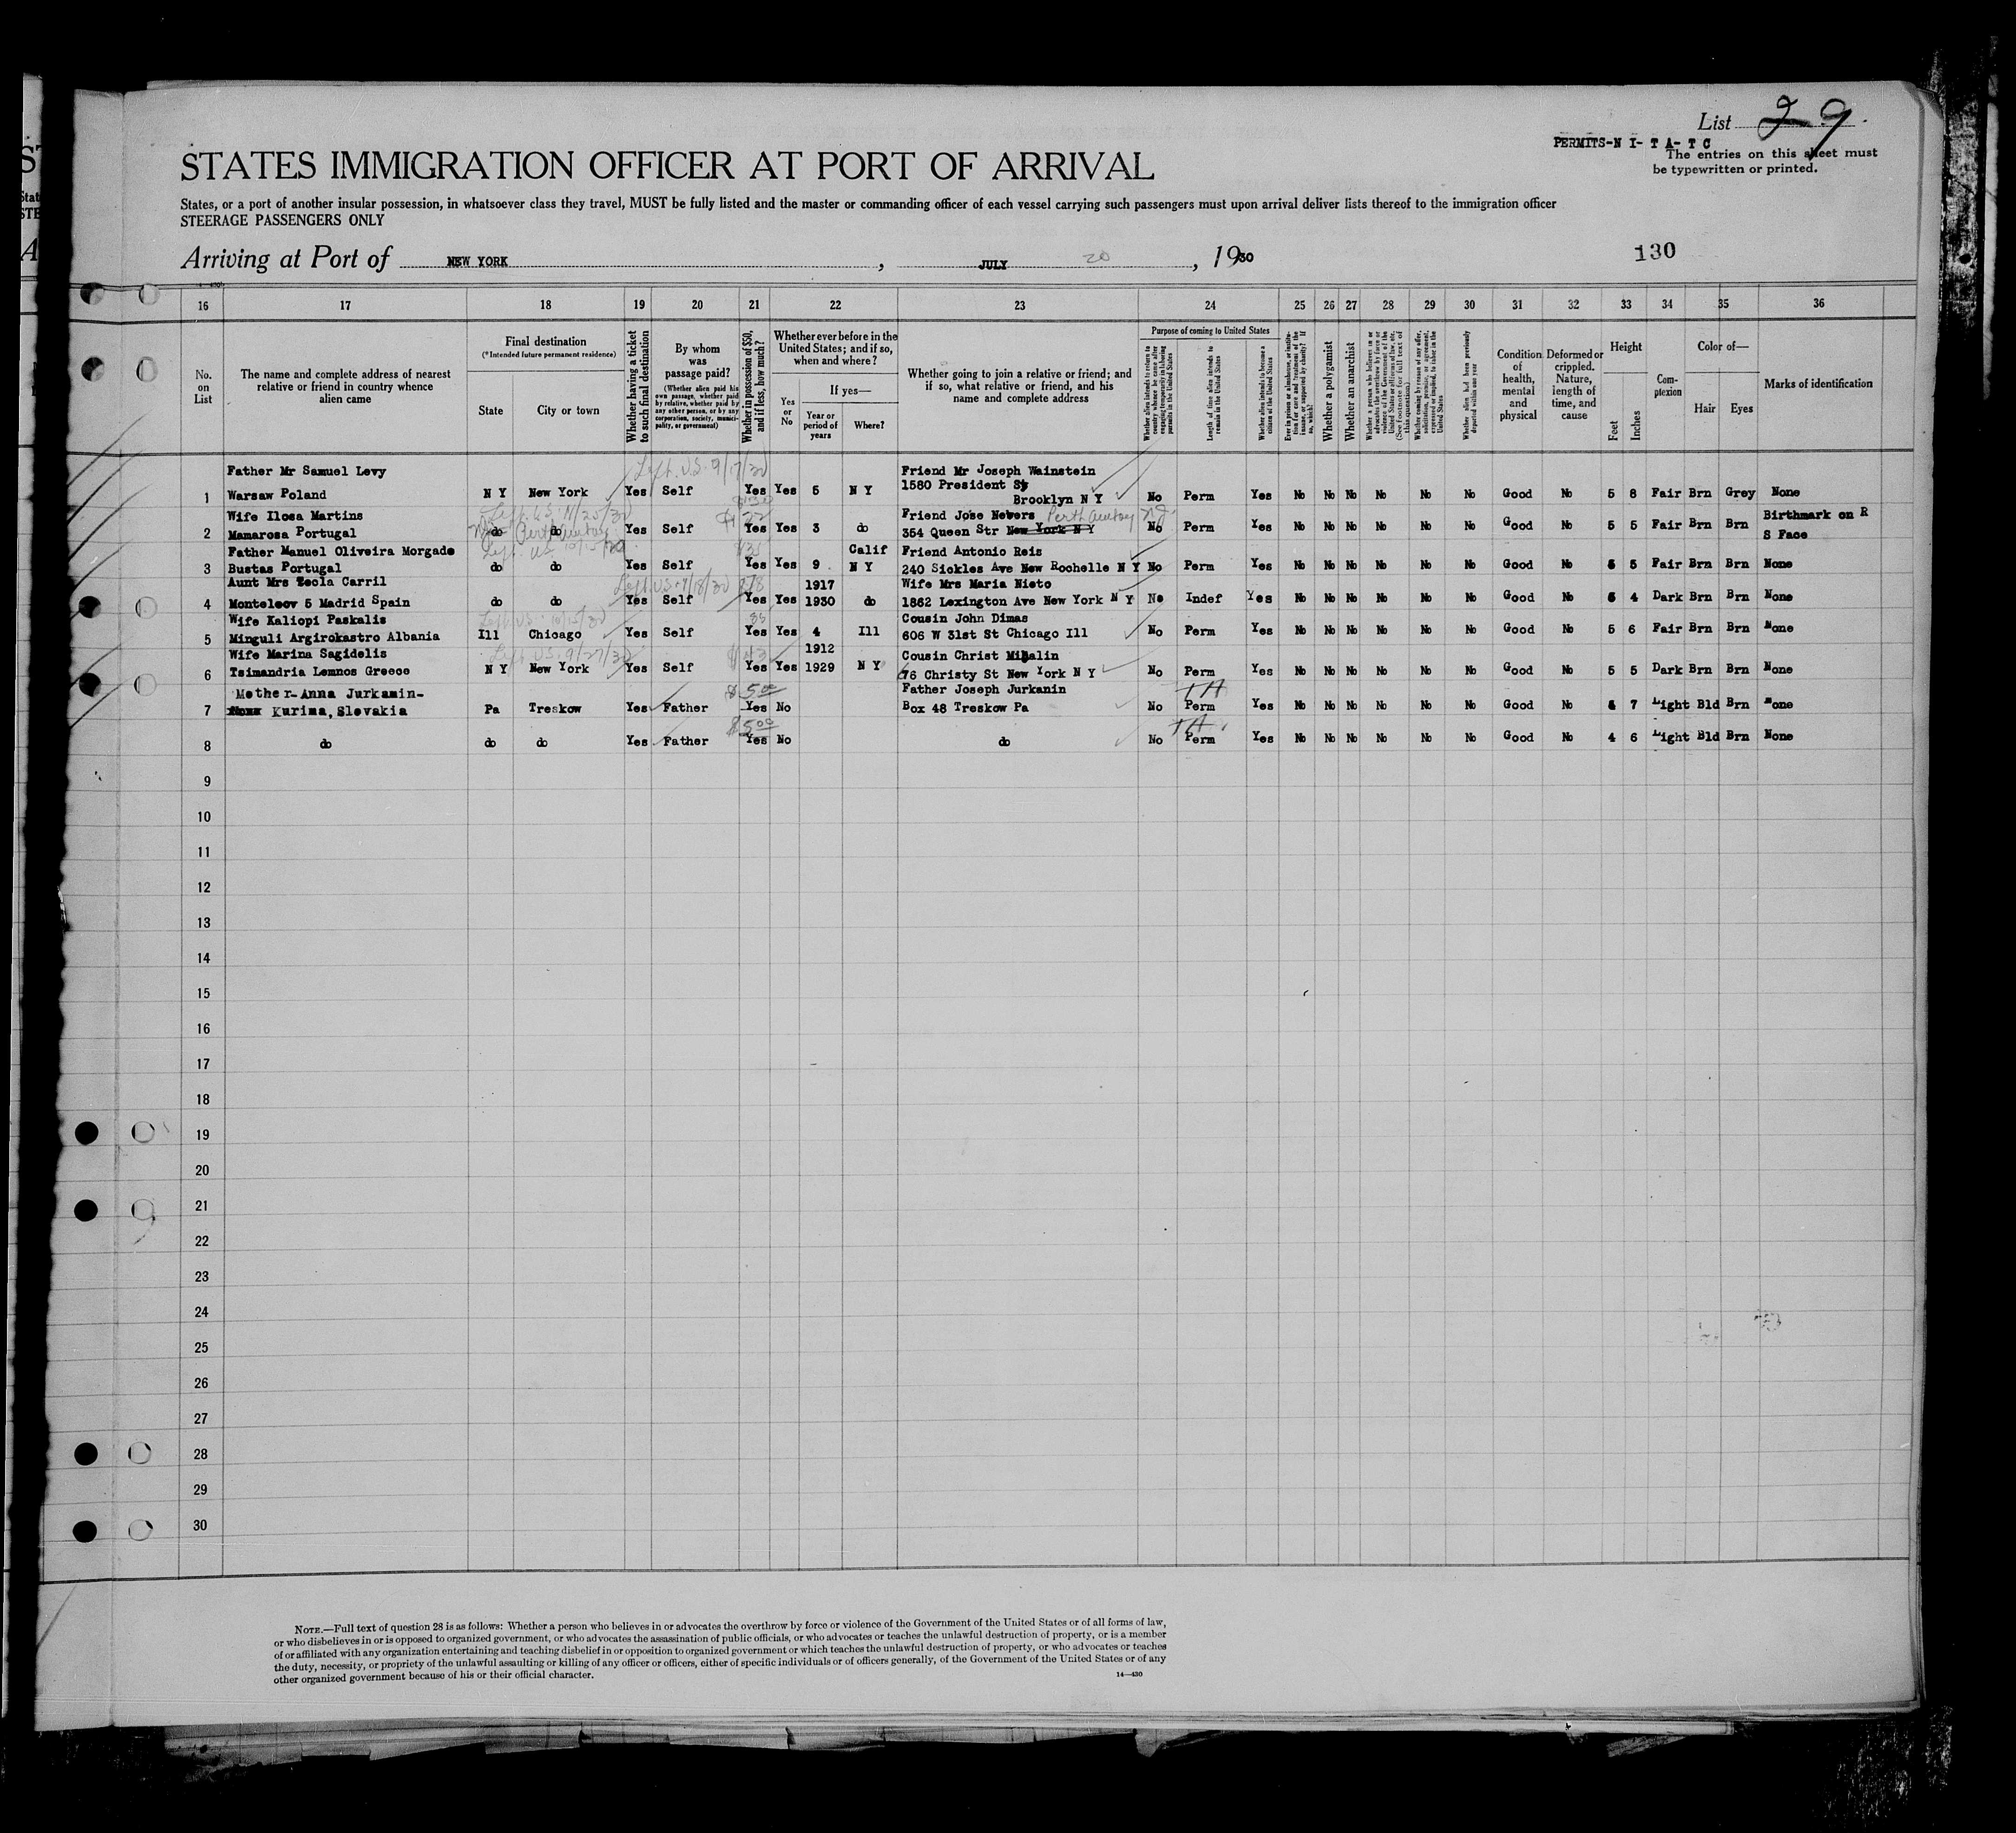 List 29
PERMITS-N I- T A- T C
The entries on this sheet must
be typewritten or printed.
STATES IMMIGRATION OFFICER AT PORT OF ARRIVAL
States, or a port of another insular possession, in whatsoever class they travel, MUST be fully listed and the master or commanding officer of each vessel carrying such passengers must upon arrival deliver lists thereof to the immigration officer
STEERAGE PASSENGERS ONLY
Arriving at Port of NEW YORK , JULY 20 , 1930
130
16 17 18 19 20 21 22 23 24 25 26 27 28 29 30 31 32 33 34 35 36
No. on List
The name and complete address of nearest relative or friend in country whence alien came
Final destination
(*Intended future permanent residence)
State
City or town
Whether having a ticket to such final destination
By whom was passage paid?
(Whether alien paid his own passage, whether paid by relative, whether paid by any other person, or by any corporation, society, municipality, or government)
Whether in possession of $50, and if less, how much?
Whether ever before in the United States; and if so, when and where?
Yes or No
If yes—
Year or period of years
Where?
Whether going to join a relative or friend; and if so, what relative or friend, and his name and complete address
Purpose of coming to United States
Whether alien intends to return to country whence he came after engaging temporarily in laboring pursuits in the United States
Length of time alien intends to remain in the United States
Whether alien intends to become a citizen of the United States
Whether a polygamist
Whether an anarchist
Whether alien had been previously deported within one year
Condition of health, mental and physical
Deformed or crippled. Nature, length of time, and cause
Height
Feet
Inches
Complexion
Color of—
Hair
Eyes
Marks of identification
Left U.S. 9/17/30
Father Mr Samuel Levy Friend Mr Joseph Wainstein
1580 President St
1 Warsaw Poland N Y New York Yes Self Yes Yes 5 N Y Brooklyn N Y No Perm Yes No No No No No No Good No 5 8 Fair Brn Grey None
Left U.S. 11/25/30
Wife Ilosa Martins Friend Jose Nevers Perth Amboy N.J. Birthmark on R
2 Mamarosa Portugal do do Perth Amboy Yes Self $22 Yes Yes 3 do 354 Queen Str New York N Y No Perm Yes No No No No No No Good No 5 5 Fair Brn Brn S Face
Left U.S. 10/15/30
Father Manuel Oliveira Morgado Calif Friend Antonio Reis
3 Bustas Portugal do do Yes Self $35 Yes Yes 9 N Y 240 Sickles Ave New Rochelle N Y No Perm Yes No No No No No No Good No 5 5 Fair Brn Brn None
Left U.S. 9/18/30
Aunt Mrs Tecla Carril 1917 Wife Mrs Maria Nieto
4 Monteleov 5 Madrid Spain do do Yes Self Yes Yes 1930 do 1862 Lexington Ave New York N Y No Indef Yes No No No No No No Good No 5 4 Dark Brn Brn None
Left U.S. 10/15/30
Wife Kaliopi Paskalis Cousin John Dimas
5 Minguli Argirokastro Albania Ill Chicago Yes Self Yes Yes 4 Ill 606 W 31st St Chicago Ill No Perm Yes No No No No No No Good No 5 6 Fair Brn Brn None
Left U.S. 9/27/30
Wife Marina Sagidelis 1912 Cousin Christ Mihalin
6 Tsimandria Lemnos Greece N Y New York Yes Self Yes Yes 1929 N Y 76 Christy St New York N Y No Perm Yes No No No No No No Good No 5 5 Dark Brn Brn None
Mother-Anna Jurkamin- $5.00 Father Joseph Jurkanin TA
7 Kurima, Slovakia Pa Treskow Yes Father Yes No Box 48 Treskow Pa No Perm Yes No No No No No No Good No 5 7 Light Bld Brn None
$5.00 TA
8 do do do Yes Father Yes No do No Perm Yes No No No No No No Good No 4 6 Light Bld Brn None
9
10
11
12
13
14
15
16
17
18
19
20
21
22
23
24
25
26
27
28
29
30
NOTE.—Full text of question 28 is as follows: Whether a person who believes in or advocates the overthrow by force or violence of the Government of the United States or of all forms of law,
or who disbelieves in or is opposed to organized government, or who advocates the assassination of public officials, or who advocates or teaches the unlawful destruction of property, or is a member
of or affiliated with any organization entertaining and teaching disbelief in or opposition to organized government or which teaches the unlawful destruction of property, or who advocates or teaches
the duty, necessity, or propriety of the unlawful assaulting or killing of any officer or officers, either of specific individuals or of officers generally, of the Government of the United States or of any
other organized government because of his or their official character.
14—430